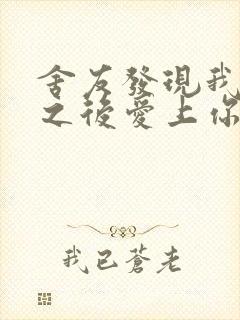 舍友發現我
之後愛上你
我已蒼老